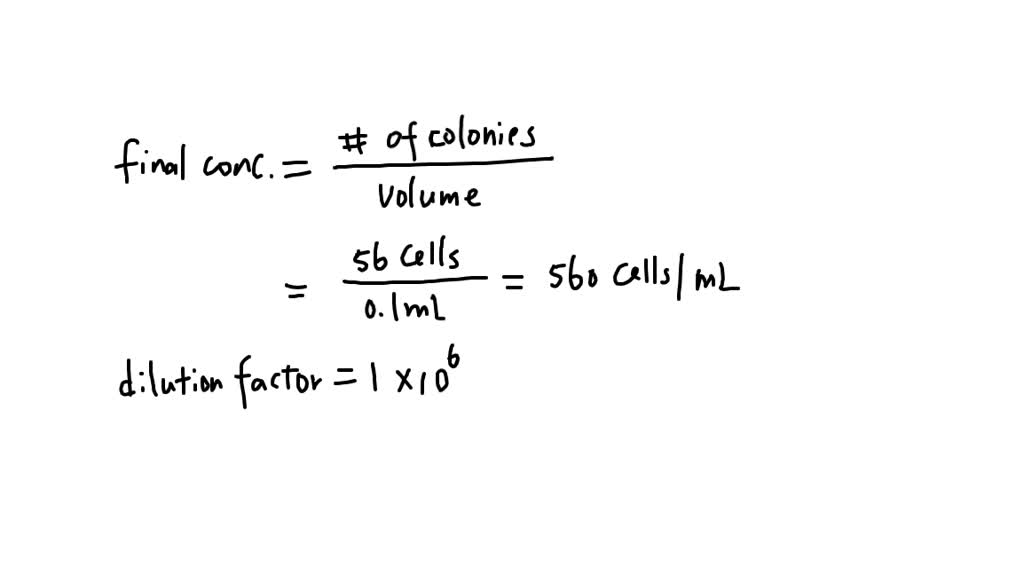 final conc. = # of colonies / volume
= 56 cells / 0.1mL = 560 cells/mL
dilution factor = 1 × 10^6